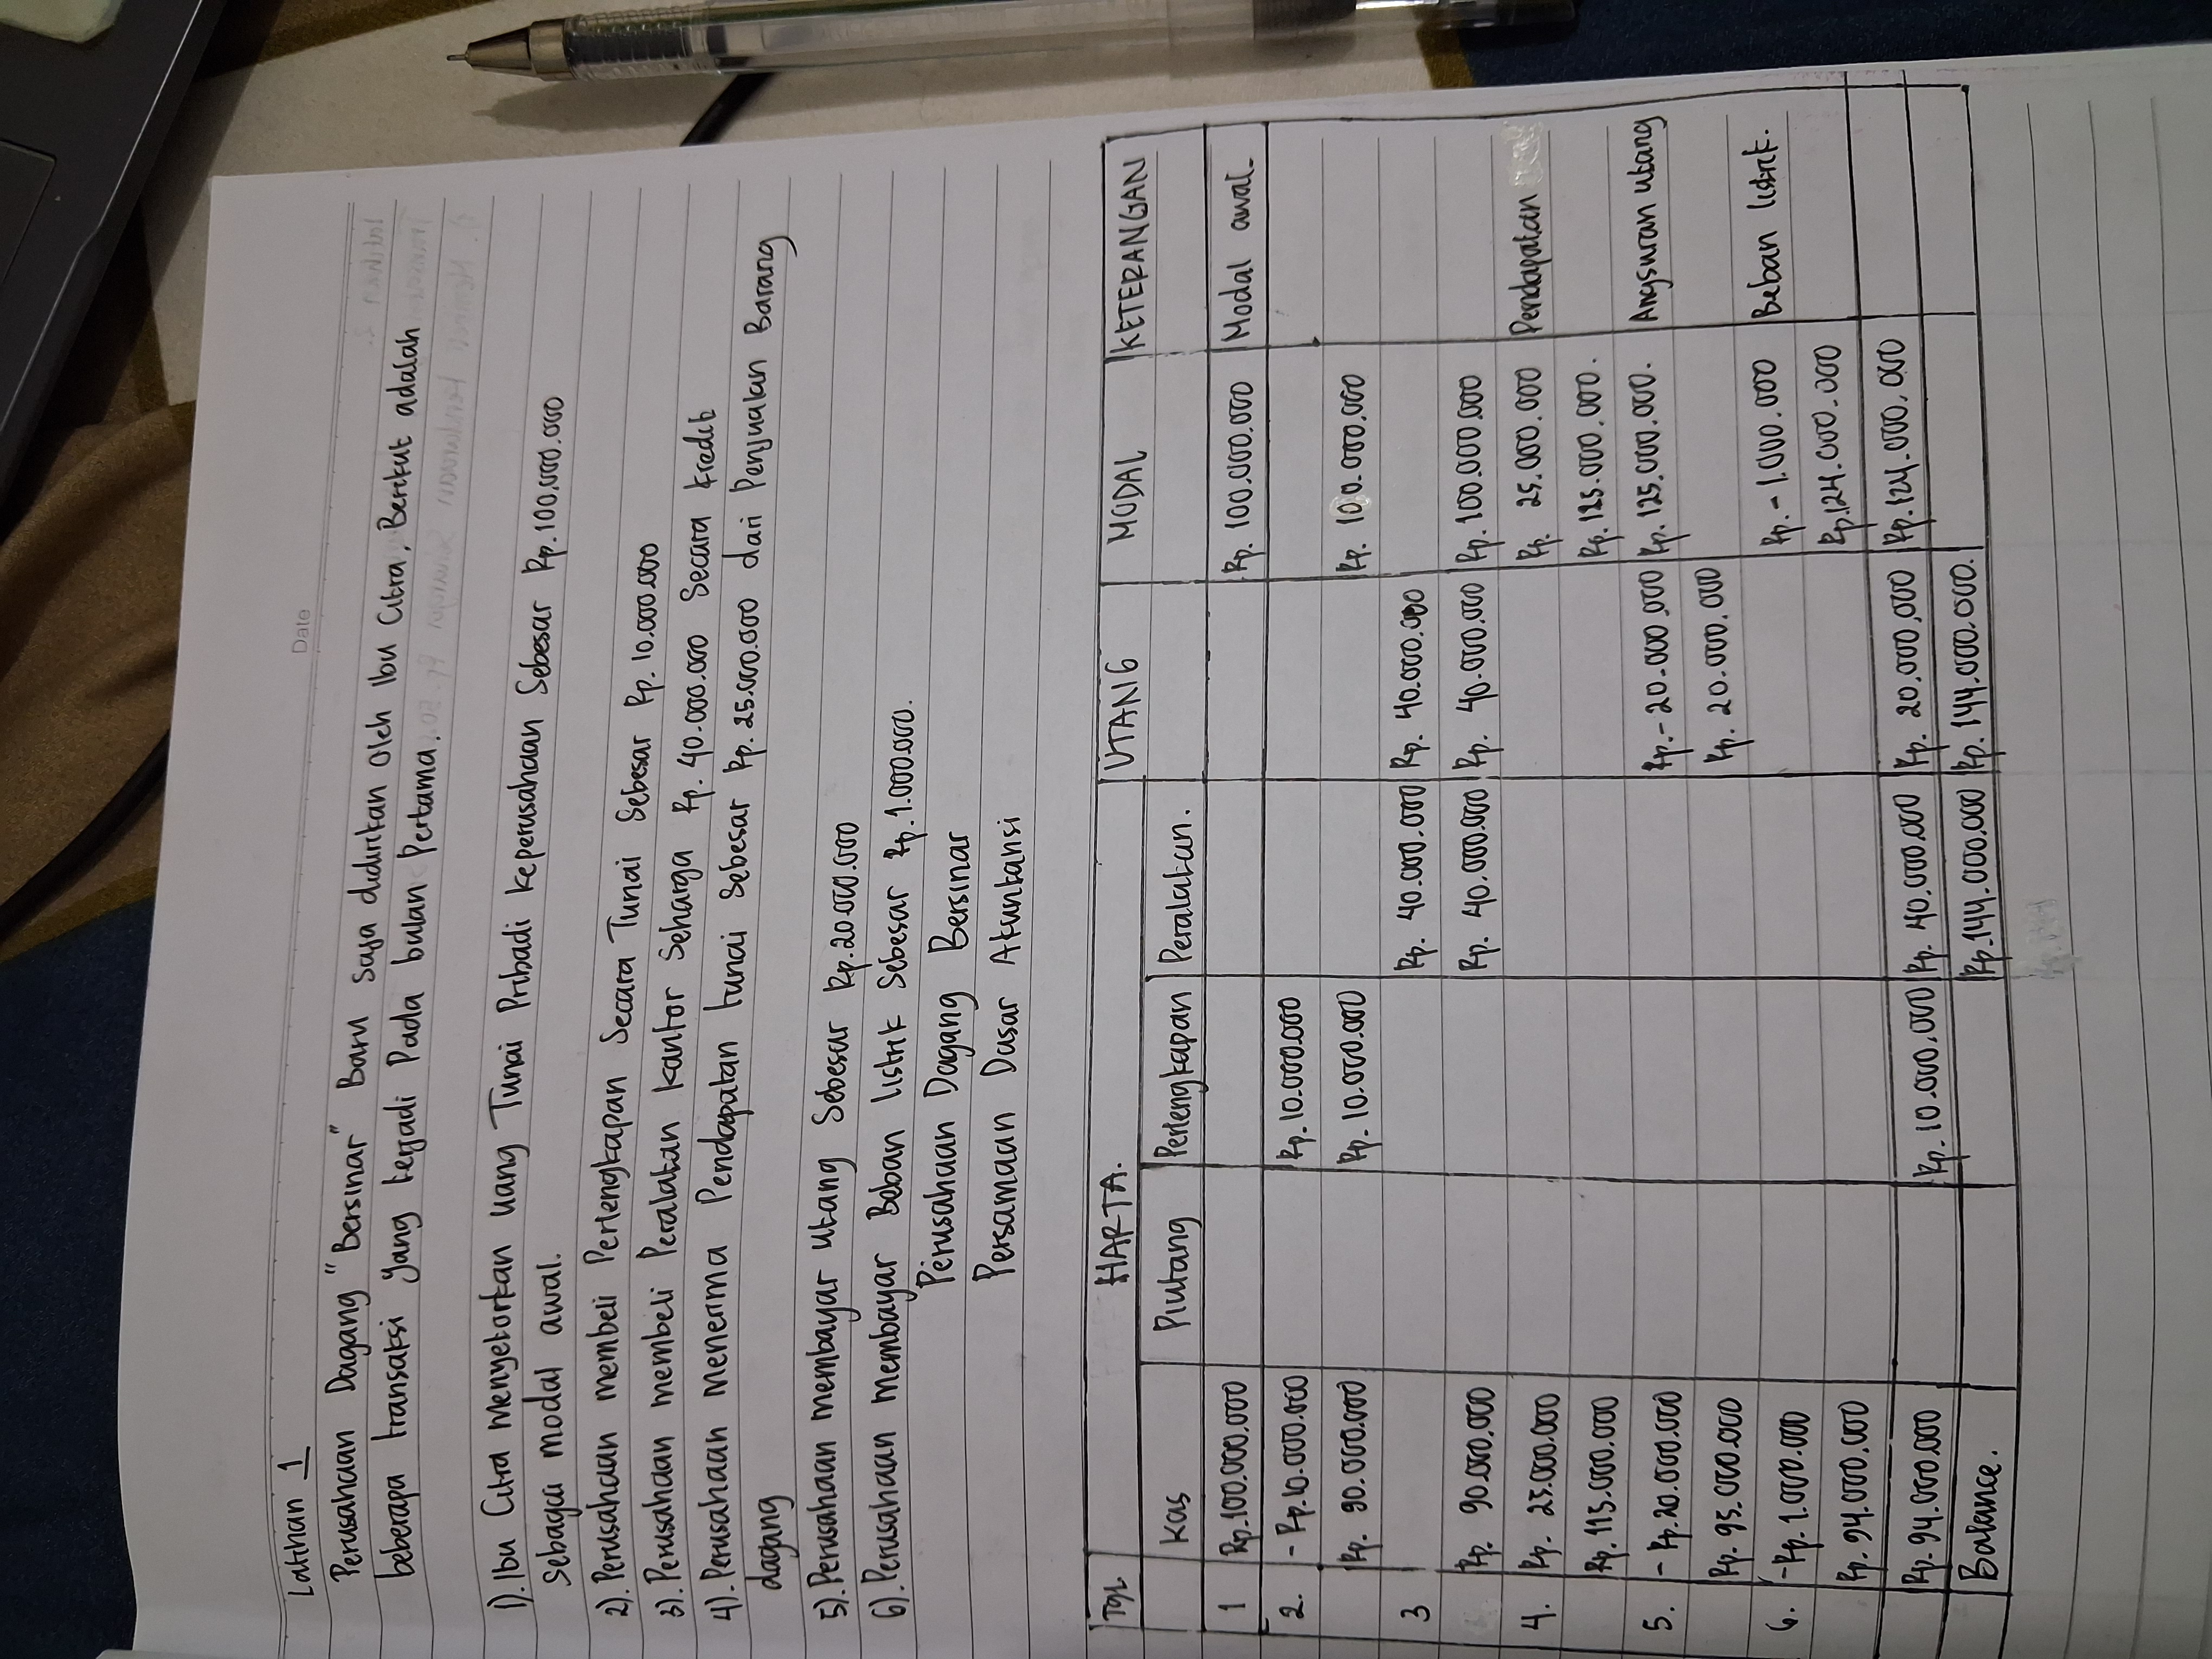 Date
Latihan 1
Perusahaan Dagang "Bersinar" Baru saja didirikan oleh Ibu Citra, Berikut adalah
beberapa transaksi yang terjadi Pada bulan Pertama.
1). Ibu Citra Menyetorkan uang Tunai Pribadi keperusahaan Sebesar Rp.100.000.000
Sebagai modal awal.
2). Perusahaan membeli Perlengkapan Secara Tunai Sebesar Rp. 10.000.000
3). Perusahaan membeli Peralatan kantor Seharga Rp. 40.000.000 Secara kredit
4). Perusahaan menerima Pendapatan tunai Sebesar Rp. 25.000.000 dari Penjualan Barang
dagang
5). Perusahaan membayar utang Sebesar Rp.20.000.000
6). Perusahaan Membayar Beban listrik Sebesar Rp.1.000.000.
Perusahaan Dagang Bersinar
Persamaan Dasar Akuntansi
Tgl HARTA. UTANG MODAL KETERANGAN
Kas Piutang Perlengkapan Peralatan.
1 Rp.100.000.000 Rp. 100.000.000 Modal awal.
2. - Rp.10.000.000 Rp. 10.000.000
Rp. 90.000.000 Rp. 10.000.000 Rp. 100.000.000
3 Rp. 40.000.000 Rp. 40.000.000
Rp. 90.000.000 Rp. 40.000.000 Rp. 40.000.000 Rp. 100.000.000
4. Rp. 25.000.000 Rp. 25.000.000 Pendapatan
Rp. 115.000.000 Rp. 125.000.000.
5. - Rp.20.000.000 Rp.- 20.000.000 Rp. 125.000.000. Angsuran utang
Rp. 95.000.000 Rp. 20.000.000
6. - Rp.1.000.000 Rp. - 1.000.000 Beban listrik.
Rp. 94.000.000 Rp.124.000.000
Rp. 94.000.000 Rp. 10.000.000 Rp. 40.000.000 Rp. 20.000.000 Rp.124.000.000
Balance. Rp.144.000.000 Rp. 144.000.000.